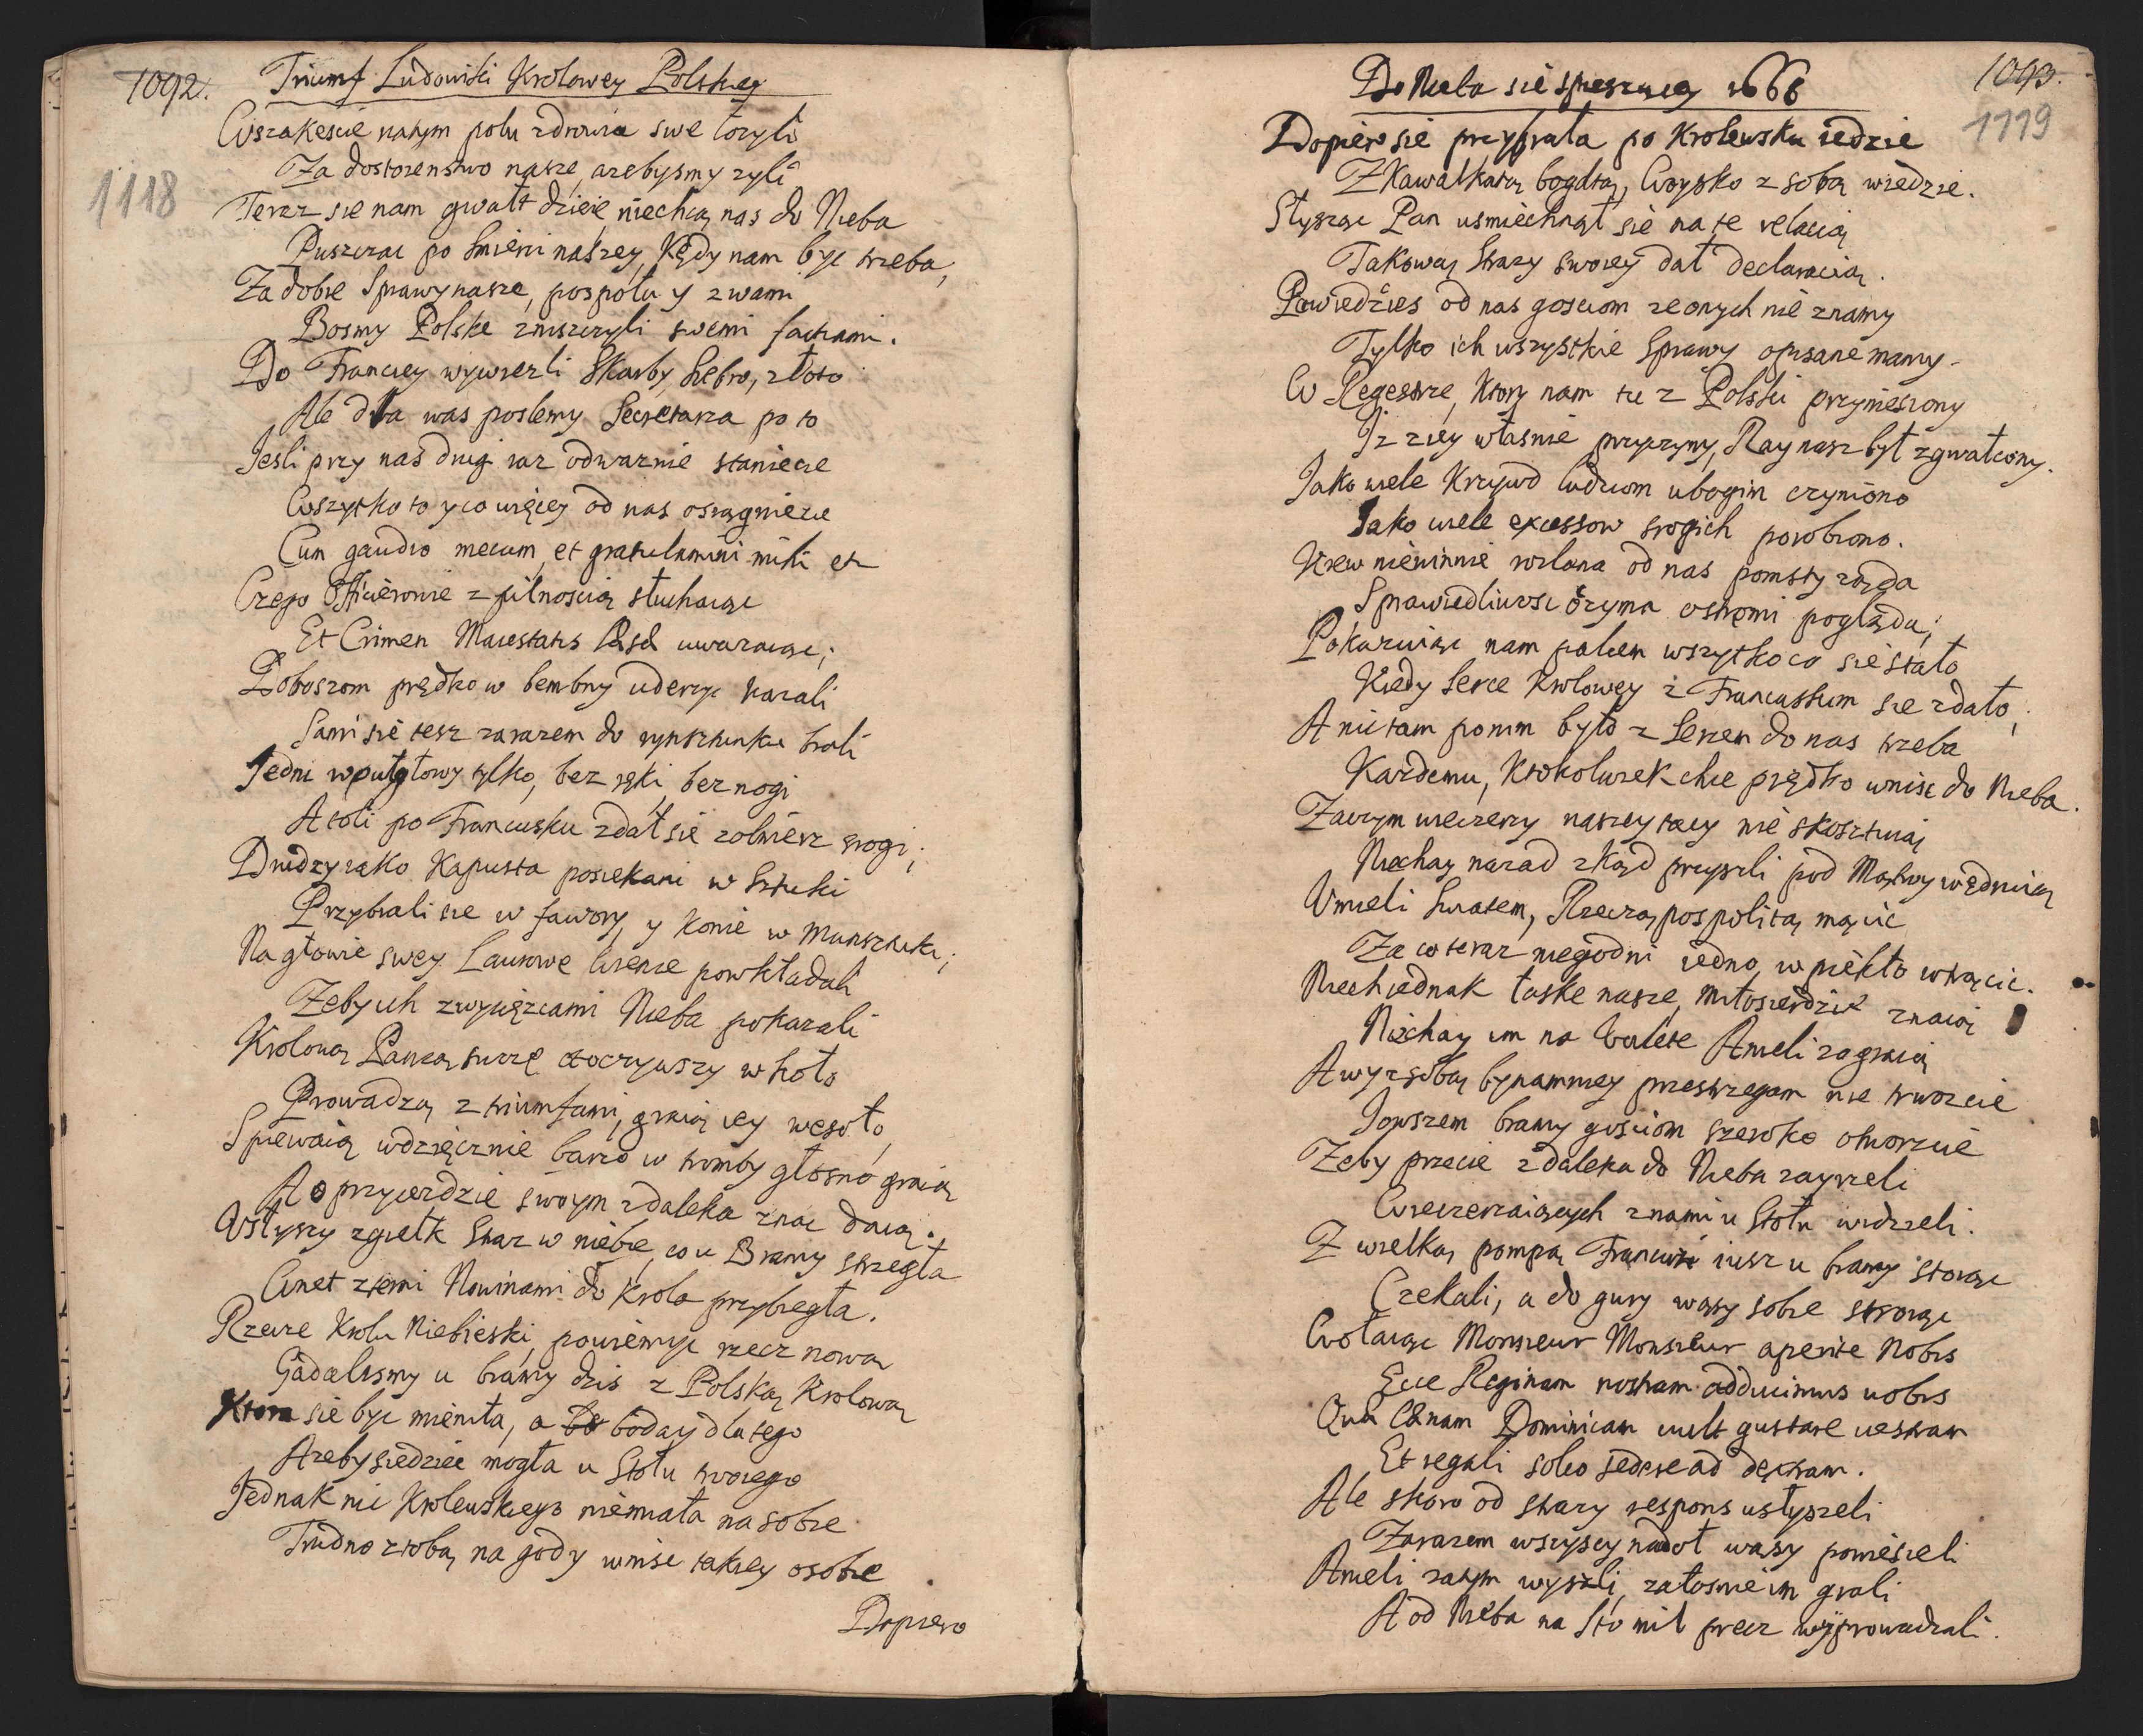 1092. Triumf Ludowiki Krolowey Polskiey
1118
Wszakescie natym polu zdrowia swe łozyli
Za dostoienstwo nasze, azebysmy zyli
Teraz sie nam gwałt dzieie, niechcą nas do Nieba
Puszczac po Smierci naszey, kędy nam byc trzeba,
Za dobre Sprawy nasze, pospołu y z wami
Bosmy Polskę zniszczyli swemi fachami.
Do Franciey wywiezli Skarby Srebro, złoto
Ale dla was poslemy Secretarza po to
Jesli przy nas drugi raz odwaznie staniecie
Wszytko to y co więcey od nas osiągniecie
Cum gaudio mecum, et gratulamini mihi etc
Czego Officierowie z pilnoscią słuchaiąc
Et Crimen Maiestatis læsæ uwazaiąc;
Doboszom prędko w bembny uderzyc kazali
Sami sie tesz zarazem do rynsztunku brali
Jedni w puł głowy tylko, bez ręki, bez nogi
A toli po Francusku zdał sie zolnierz srogi;
Drudzy iako kapusta posiekani w Sztuki
Przybrali sie w fawory, y konie w munsztuki;
Na głowie swey Laurowe wience powkładali
Zeby ich zwyciężcami Nieba pokazali
Krolową Pancą swoię otoczywszy w koło
Prowadzą z triumfami, graią iey wesoło,
Spiewaią wdzięcznie barzo w tromby głosno graią
A o przyiezdzie swoym zdaleka znac daią.
Usłyszy zgiełk Straz w niebie, co u Bramy strzegła
Wnet z temi Nowinami do Krola przybiegła.
Rzecze Krolu Niebieski, powiemyc rzecz nową
Gadalismy u bramy dzis z Polską Krolową
Ktora sie byc mieniła, a boday dla tego
Azeby siedziec mogła u Stołu twoiego
Jednak nic Krolewskiego niemiała na sobie
Trudno z tobą na gody wnisc takiey osobie
Dopiero
Do Nieba sie spieszącey 1666
1093.
1119
Dopiero sie przybrała po Krolewsku iedzie
Z Kawalkatą bogatą, Woysko z sobą wiedzie.
Słysząc Pan usmiechnął sie na te relacią
Takową Strazy swoiey dał declaracią.
Powiedzcies od nas gosciom ze onych nie znamy
Tylko ich wszystkie Sprawy opisane mamy.
W Regestrze, ktory nam tu z Polski przyniesiony
Iz z tey własnie przyczyny, Ray nasz był zgwałcony.
Jako wiele Krzywd ludziom ubogim czyniono
Jako wiele excessow srogich porobiono.
Krew niewinnie wylana od nas pomsty ząda
Sprawiedliwosc oczyma ostremi pogląda;
Pokazuiąc nam palcem wszytko co sie stało
Kiedy Serce Krolowey z Francuskim sie zdało,
A nie tam ponim było z Sercem do nas trzeba
Kazdemu, ktokolwiek chce prędko wnisc do Nieba.
Zaczym wieczerzy naszey tacy nie skosztuią
Niechay nazad zkąd przyszli pod Mątwy wędruią
Umieli Swiatem, Rzecząpospolitą mącic
Za co teraz niegodni iedno w piekło wtrącic.
Niech iednak łaskę nasze, miłosierdzie znaią
Niechay im na Walete Anieli zagraią
A wy z sobą bynamniey przestrzegam nie trwozcie
Jowszem bramy gosciom szeroko otworzcie
Zeby przecie zdaleka do Nieba zayrzeli
Wieczerzaiących z nami u Stołu widzieli.
Z wielką pompą Francuzi iusz u bramy stoiąc
Czekali, a do gury wąsy sobie stroiąc
Wołaiąc Monsieur Monsieur aperite Nobis
Ecce Reginam nostram adducimus uobis
Quæ Cænam Dominicam uult gustare uestram
Et regali solio sedere ad dextram.
Ale skoro od strazy respons usłyszeli
Zarazem wszyscy nadoł wąsy powiesieli
Anieli zatym wyszli, załosnie im grali
A od Nieba na Sto mil precz wyprowadzali.